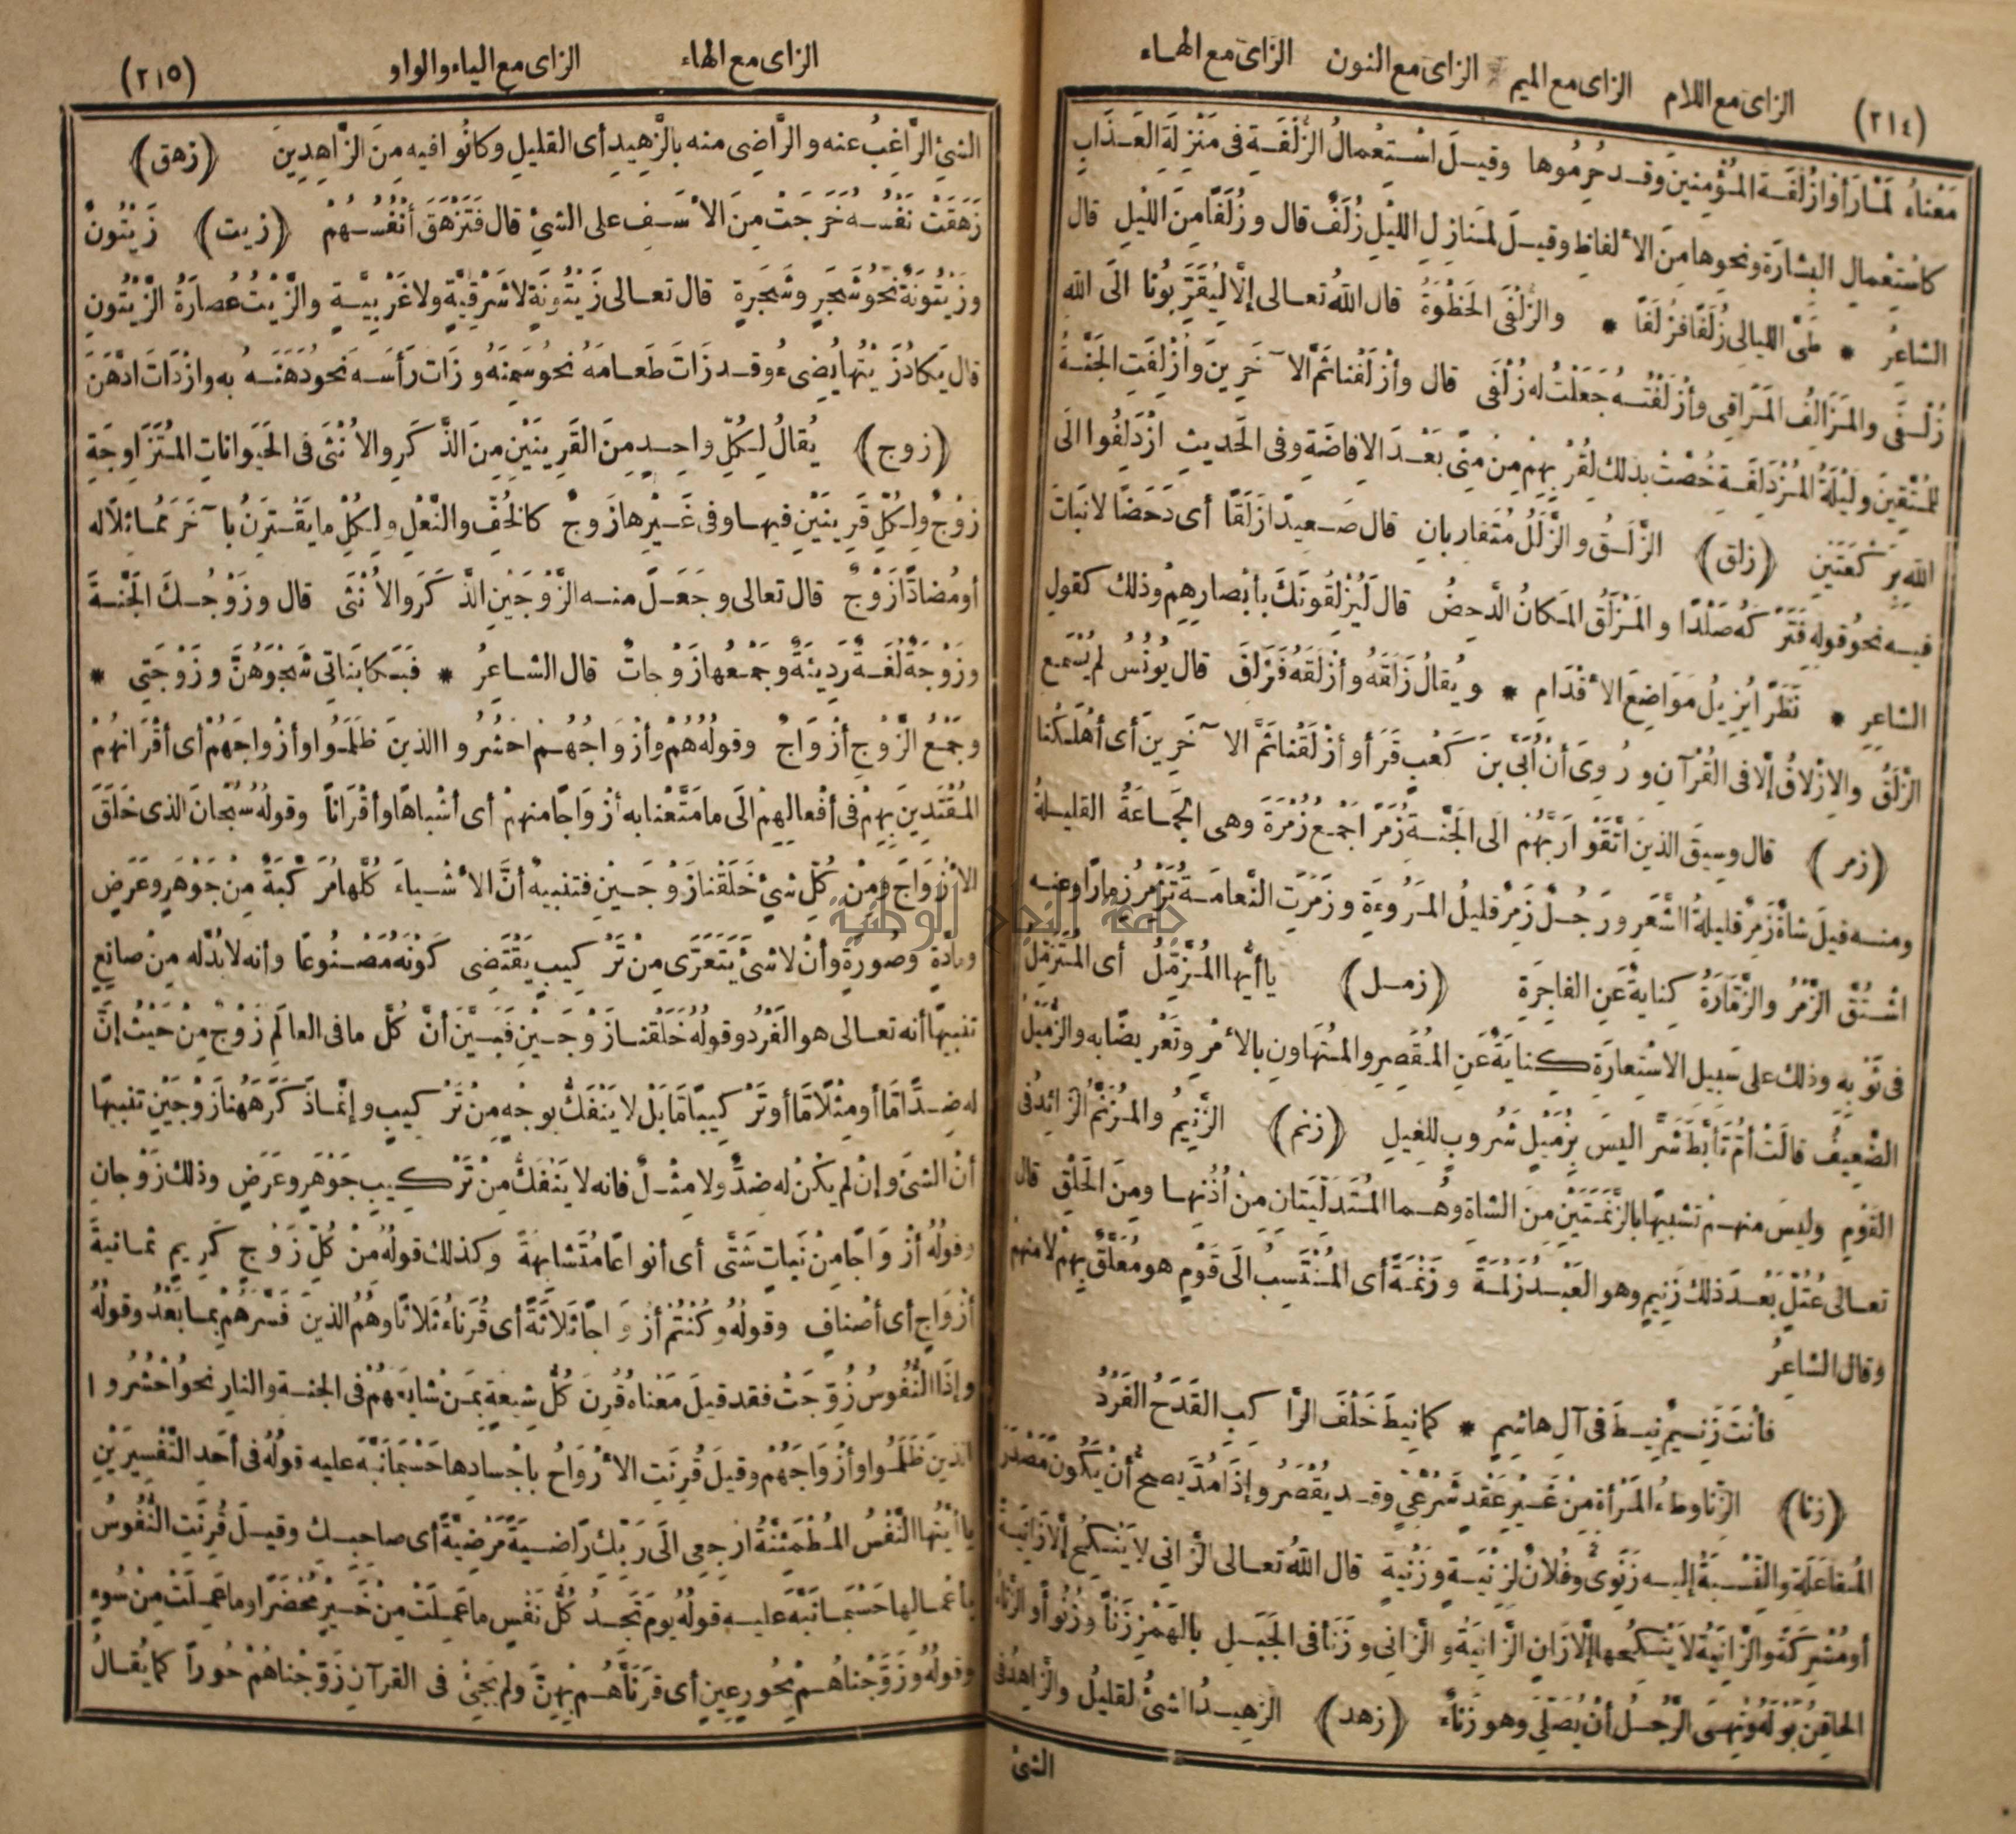 (٢١٤) الزاى مع اللام الزاى مع الميم الزاى مع النون الزاى مع الهاء
مَعْناهُ لمَّا رَأَوْا زُلْفَةَ المُؤْمِنينَ وقد حُرِمُوها وقيلَ اسْتِعْمالُ الزُّلْفَةِ فى مَنْزِلَةِ العَذَابِ
كاسْتِعْمالِ البِشارَةِ ونحوِها مِنَ الألفاظِ وقيلَ لمَنازِلِ اللَّيْلِ زُلَفٌ قال وزُلَفًا مِنَ اللَّيْلِ قال
الشاعرُ * طَىَّ الليالى زُلَفًا فزُلَفَا * والزُّلْفَى الحَظْوَةُ قال اللهُ تعالى إلَّا لِيُقَرِّبُونا الَى اللهِ
زُلْفَى والمَزَالِفُ المَرَاقِى وأزْلَفْتُهُ جَعَلْتُ له زُلْفَى قال وأزْلَفْنا ثَمَّ الآخَرِينَ وأُزْلِفَتِ الجَنَّةُ
لِلمُتَّقِينَ ولَيْلَةُ المُزْدَلِفَةِ خُصَّتْ بذلك لِقُرْبِهِمْ مِنْ مِنًى بَعْدَ الافاضَةِ وفى الحَدِيثِ ازْدَلِفُوا الَى
اللهِ بِرَكْعَتَيْنِ (زلق) الزَّلَقُ والزَّلَلُ مُتَقارِبانِ قال صَعِيدًا زَلَقًا أى دَحَضًا لا نَباتَ
فيه نحوُ قوله فَتَرَكَهُ صَلْدًا والمَزْلَقُ المَكانُ الدَّحِضُ قال لَيُزْلِقُونَكَ بأبْصارِهِمْ وذلك كقولِ
الشاعرِ * نَظَرًا يُزِيلُ مَوَاضِعَ الأقْدَامِ * ويُقالُ زَلَقَهُ وأزْلَقَهُ فَزَلِقَ قال يُونُسُ لم يُسْمَعِ
الزَّلَقُ والازْلاقُ إلَّا فى القُرْآنِ ورُوِىَ أنَّ أُبَىَّ بْنَ كَعْبٍ قَرَأ وأزْلَقْنا ثَمَّ الآخَرِينَ أى أهْلَكْنا
(زمر) قال وسِيقَ الذينَ اتَّقَوْا رَبَّهُمْ الَى الجَنَّةِ زُمَرًا جَمْعُ زُمْرَةٍ وهى الجَماعَةُ القليلةُ
ومنه قيلَ شاةٌ زَمِرَةٌ قليلةُ الشَّعَرِ ورَجُلٌ زَمِرٌ قليلُ المُرُوءَةِ وزَمَرَتِ النَّعامَةُ تَزْمِرُ زِمارًا وعنه
اشْتُقَّ الزَّمْرُ والزَّمَّارَةُ كِنايةٌ عَنِ الفاجِرَةِ (زمل) ياأيُّها المُزَّمِّلُ أى المُتَزَمِّلُ
فى ثَوْبِهِ وذلك على سَبِيلِ الاسْتِعارَةِ كِنايَةً عَنِ المُقَصِّرِ والمُتَهاوِنِ بالأمْرِ وتَعْرِيضًا به والزُّمَّيْلُ
الضَّعِيفُ قالَتْ أمُّ تَأَبَّطَ شَرًّا ليسَ بِزُمَّيْلٍ شَرُوبٍ للغَيْلِ (زنم) الزَّنِيمُ والمُزَنَّمُ الزائِدُ فى
القَوْمِ وليسَ منهم تشبيهًا بالزَّنَمَتَيْنِ مِنَ الشاةِ وهُما المُتَدَلِّيَتانِ مِنْ أُذُنِها ومِنَ الحَلْقِ قال
تعالى عُتُلٍّ بَعْدَ ذلك زَنِيمٍ وهو العَبْدُ زُلْمَةً وزَنْمَةً أى المُنْتَسِبُ الَى قَوْمٍ هو مُعَلَّقٌ بِهِمْ لا منهم
وقال الشاعرُ
فأنتَ زَنِيمٌ نِيطَ فى آلِ هاشِمٍ * كما نِيطَ خَلْفَ الرَّاكِبِ القَدَحُ الفَرْدُ
(زنا) الزِّنا وطءُ المَرْأةِ مِنْ غَيْرِ عَقْدٍ شَرْعِىٍّ وقد يُقْصَرُ وإذا مُدَّ يصحُّ أنْ يَكُونَ مَصْدَرَ
المُفاعَلَةِ والنِّسْبَةُ إليه زَنَوِىٌّ وفُلانٌ لِزِنْيَةٍ وزَنْيَةٍ قال اللهُ تعالى الزَّانِى لا يَنْكِحُ إلَّا زانِيَةً
أو مُشْرِكَةً والزَّانِيَةُ لا يَنْكِحُها إلَّا زانٍ الزَّانِيَةُ والزَّانِى وزَنَأ فى الجَبَلِ بالهَمْزِ زَنْأً وزُنُوأً والزَّنَاءُ
الحاقِنُ بَوْلَهُ ونُهِىَ الرَّجُلُ أنْ يُصَلِّىَ وهو زَنَاءٌ (زهد) الزهِيدُ الشئُ القليلُ والزَّاهِدُ فى
الشئ
الزاى مع الهاء الزاى مع الياء والواو (٢١٥)
الشئِ الرَّاغِبُ عنه والرَّاضِى منه بالزَّهِيدِ أى القليلِ وكانُوا فيه مِنَ الزَّاهِدِينَ (زهق)
زَهَقَتْ نَفْسُهُ خَرَجَتْ مِنَ الأسَفِ على الشئِ قال فَتَزْهَقَ أنْفُسُهُمْ (زيت) زَيْتُونٌ
وزَيْتُونَةٌ نحوُ شَجَرٍ وشَجَرةٍ قال تعالى زَيْتُونَةٍ لا شَرْقِيَّةٍ ولا غَرْبِيَّةٍ والزَّيْتُ عُصارَةُ الزَّيْتُونِ
قال يَكادُ زَيْتُها يُضِىءُ وقد زَاتَ طَعامَهُ نحوُ سَمِنَهُ وزَاتَ رَأسَه نحوُ دَهَنَه به وازْدَاتَ ادَّهَنَ
(زوج) يُقالُ لِكُلِّ واحِدٍ مِنَ القَرِينَيْنِ مِنَ الذَّكَرِ والأُنْثَى فى الحَيَوَاناتِ المُتَزَاوِجَةِ
زَوْجٌ ولِكُلِّ قَرِينَيْنِ فيها وفى غَيْرِها زَوجٌ كالخُفِّ والنَّعْلِ ولِكُلِّ ما يَقْتَرِنُ بآخَرَ مُماثِلًا له
أو مُضادًّا زَوْجٌ قال تعالى وجَعَلَ منه الزَّوْجَيْنِ الذَّكَرَ والأُنْثَى قال وزَوْجُكَ الجَنَّةَ
وزَوْجَةٌ لُغَةٌ رَدِيئَةٌ وجَمْعُها زَوْجاتٌ قال الشاعرُ * فَبَكا بَناتِى شَجْوَهُنَّ وزَوْجَتِى *
وجَمْعُ الزَّوْجِ أزْوَاجٌ وقولُه هُمْ وأزْوَاجُهُمْ احْشُرُوا الذينَ ظَلَمُوا وأزْواجَهُمْ أى أقْرَانَهُمْ
المُقْتَدِينَ بِهِمْ فى أفْعالِهِمْ الَى ما مَتَّعْنا به أزْوَاجًا منهمْ أى أشْباهًا وأقْرَانًا وقولُه سُبْحانَ الذى خَلَقَ
الأزْوَاجَ ومِنْ كُلِّ شئٍ خَلَقْنا زَوْجَيْنِ فتنبيهٌ أنَّ الأشياءَ كُلَّها مُرَكَّبَةٌ مِنْ جَوْهَرٍ وعَرَضٍ
ومادَّةٍ وصُورَةٍ وأنْ لا شئَ يَتَعَرَّى مِنْ تَرْكِيبٍ يَقْتَضِى كَوْنَهُ مَصْنُوعًا وأنه لا بُدَّ له مِنْ صانِعٍ
تنبيهًا أنه تعالى هو الفَرْدُ وقولُه خَلَقْنا زَوْجَيْنِ فَبَيَّنَ أنَّ كُلَّ ما فى العالَمِ زَوْجٌ مِنْ حَيْثُ إنَّ
له ضِدًّا مَّا أو مِثْلًا مَّا أو تَرْكِيبًا مَّا بَلْ لا يَنْفَكُّ بوجْهٍ مِنْ تَرْكِيبٍ وإنَّما ذَكَرَ هَهُنا زَوْجَيْنِ تنبيهًا
أنَّ الشئَ وإنْ لم يكُنْ له ضِدٌّ ولا مِثْلٌ فانه لا يَنْفَكُّ مِنْ تَرْكِيبِ جَوْهَرٍ وعَرَضٍ وذلك زَوْجانِ
وقولُه أزْوَاجًا مِنْ نَباتٍ شَتَّى أى أنواعًا مُتَشابِهَةً وكذلك قولُه مِنْ كُلِّ زَوْجٍ كَرِيمٍ ثمَانِيةَ
أزْوَاجٍ أى أصْنافٍ وقولُه وكُنْتُمْ أزْوَاجًا ثَلاثَةً أى قُرَناءَ ثَلاثًا وهُمُ الذينَ فَسَّرَهُمْ بما بَعْدُ وقولُه
وإذَا النُّفُوسُ زُوِّجَتْ فقد قيلَ مَعْناهُ قُرِنَ كُلُّ شِيعَةٍ بمَنْ شايَعَهُمْ فى الجنةِ والنارِ نحوُ احْشُرُوا
الذينَ ظَلَمُوا وأزْوَاجَهُمْ وقيلَ قُرِنَتِ الأرْوَاحُ بأجْسادِها حَسْبَما نَبَّهَ عليه قولُه فى أحَدِ التَّفْسِيرَيْنِ
ياأيَّتُها النَّفْسُ المُطْمَئِنَّةُ ارْجِعِى الَى رَبِّكِ رَاضِيَةً مَرْضِيَّةً أى صاحِبِك وقيلَ قُرِنَتِ النُّفُوسُ
بأعْمالِها حَسْبَما نَبَّهَ عليه قولُه يومَ تَجِدُ كُلُّ نَفْسٍ ما عَمِلَتْ مِنْ خَيْرٍ مُحْضَرًا وما عَمِلَتْ مِنْ سُوءٍ
وقولُه وزَوَّجْناهُمْ بحُورٍ عِينٍ أى قَرَنَّاهُمْ بهِنَّ ولم يَجِئْ فى القرآنِ زَوَّجْناهُمْ حُوراً كما يُقالُ
جامعة النجاح الوطنية